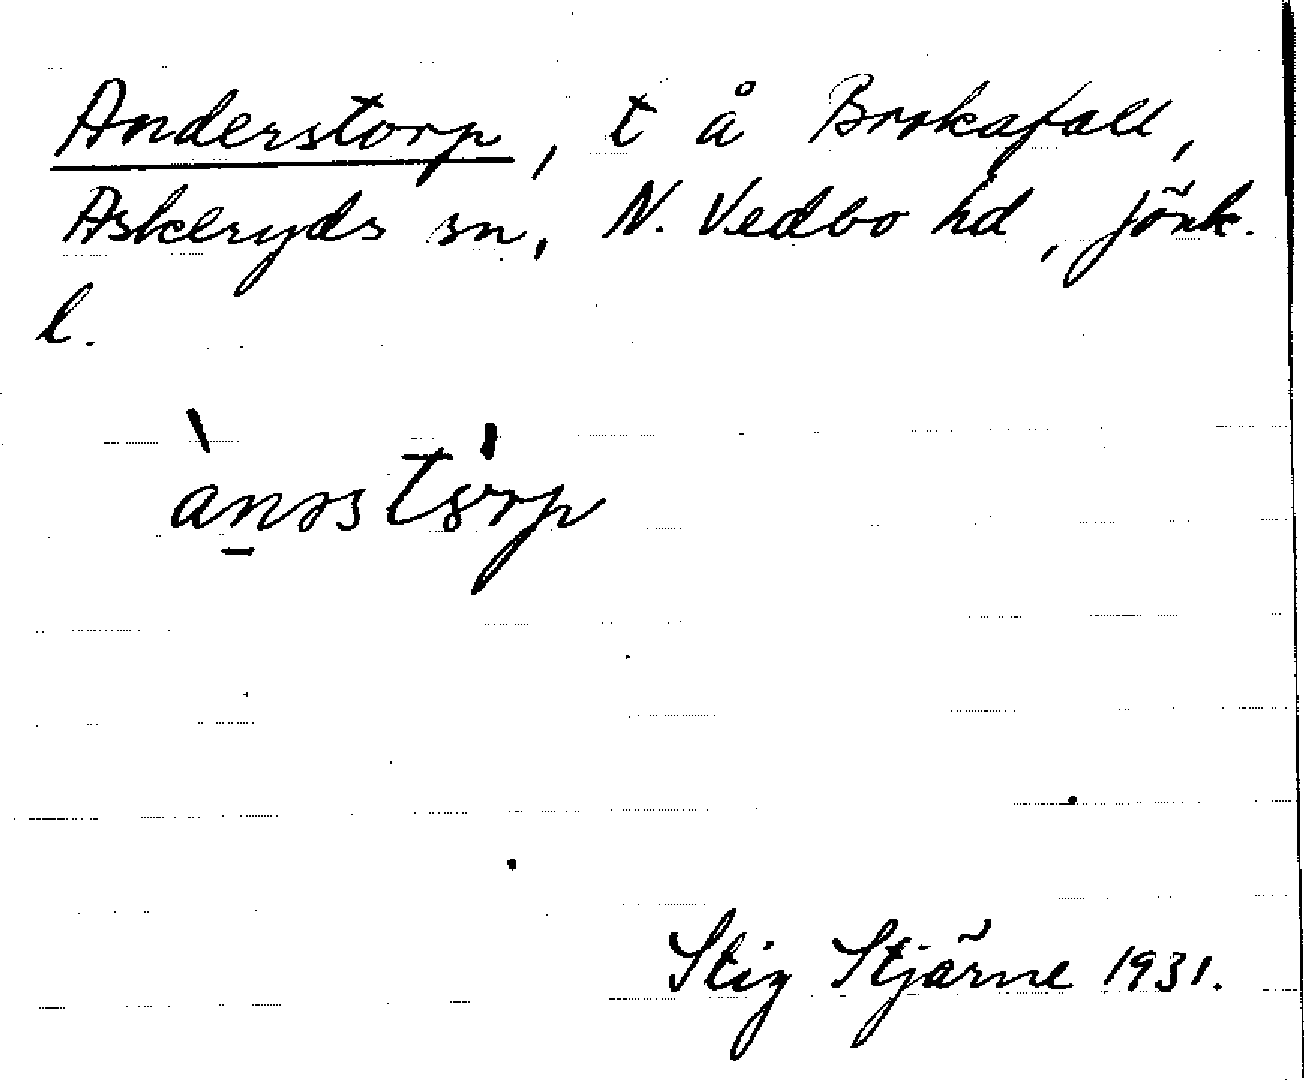 Anderstorp, t å Brokafall,
Askeryds sn, N. Vedbo hd, Jönk.
l.
Stig Stjärne 1931.